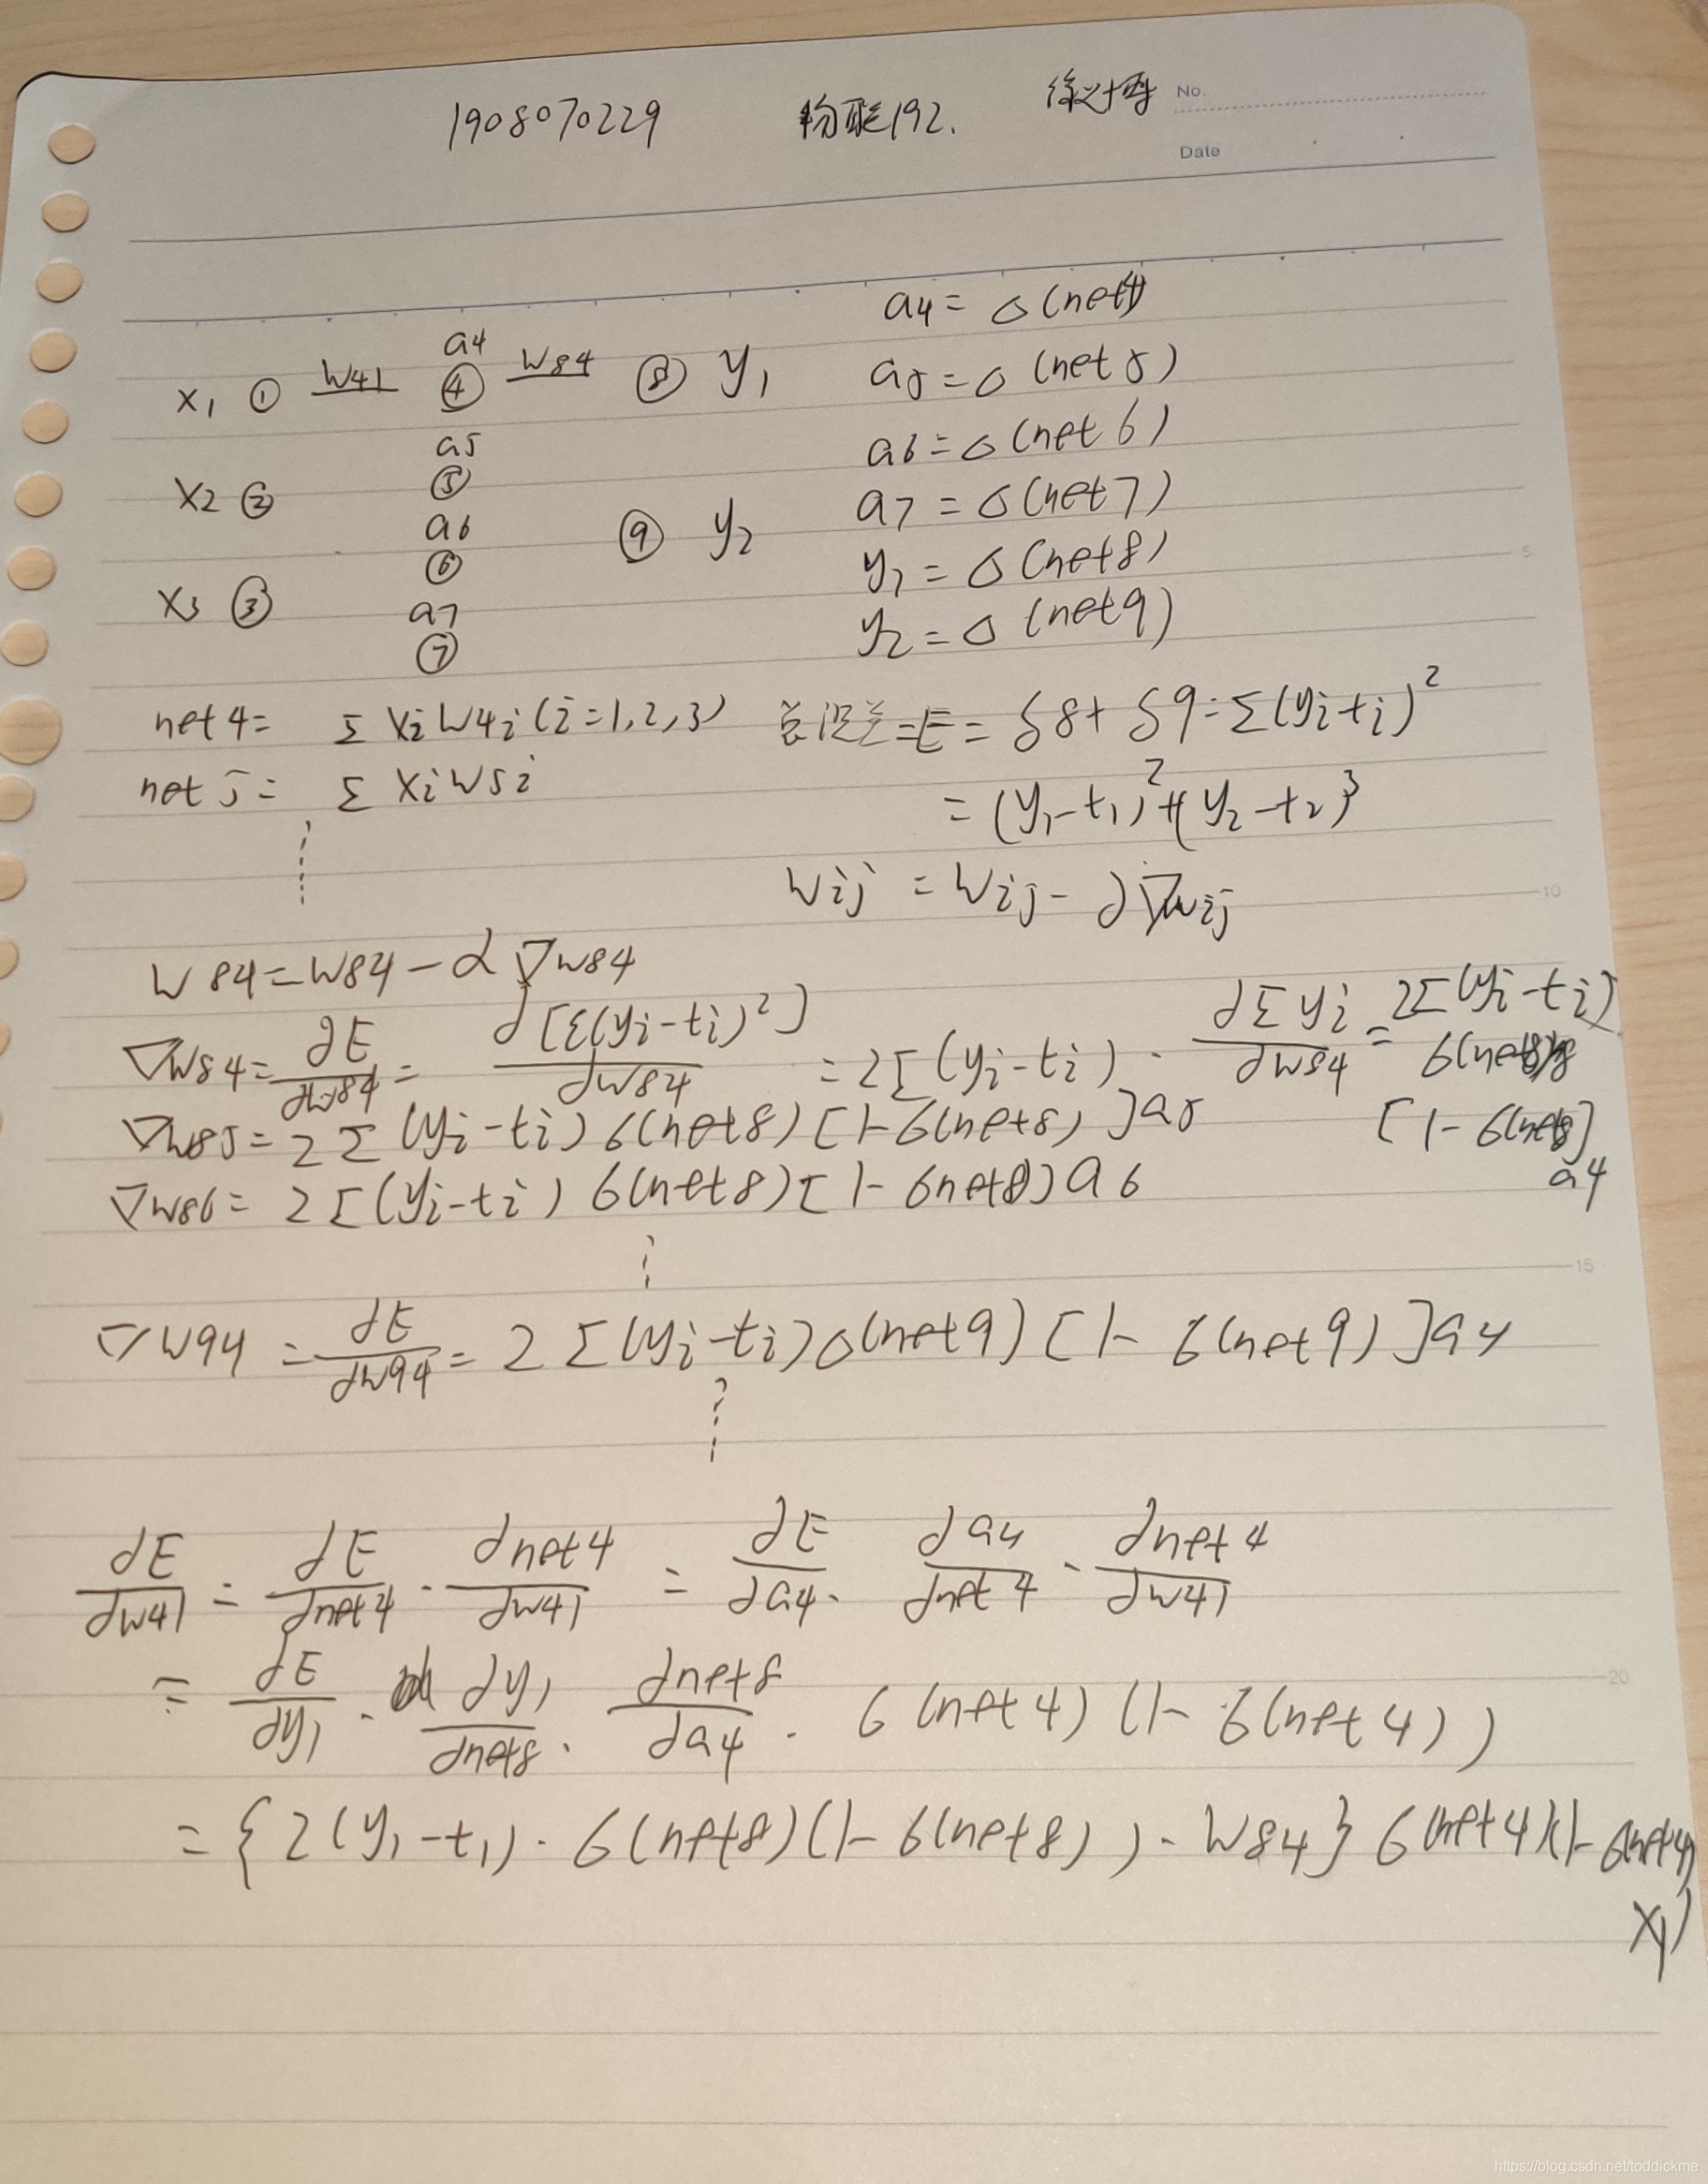 1908070229 物联192.
No.
Date
a4 = σ(net4)
a4
x1 ① w41 ④ w84 ⑧ y1 a5 = σ(net5)
a5 a6 = σ(net6)
x2 ② ⑤ a7 = σ(net7)
a6 ⑨ y2
⑥ y1 = σ(net8)
x3 ③ a7 y2 = σ(net9)
⑦
net4 = Σ xi w4i (i=1,2,3) 总误差 = E = δ8 + δ9 = Σ(yi+i)^2
net5 = Σ xi w5i = (y1-t1)^2 + (y2-t2)^3
⋮
wij = wij - ∂∇wij
w84 = w84 - α∇w84
∇w84 = ∂E/∂w84 = ∂[Σ(yi-ti)^2]/∂w84 = 2Σ(yi-ti) · ∂Σyi/∂w84 = 2Σ(yi-ti)
6(net8)
∇w85 = 2Σ(yi-ti)6(net8)[1-6(net8)]a5 [1-6(net8)]
a4
∇w86 = 2Σ(yi-ti)6(net8)[1-6net8)]a6
⋮
∇w94 = ∂E/∂w94 = 2Σ(yi-ti)σ(net9)[1-6(net9)]a4
⋮
∂E/∂w41 = ∂E/∂net4 · ∂net4/∂w41 = ∂E/∂a4 · ∂a4/∂net4 · ∂net4/∂w41
= ∂E/∂y1 · ∂y1/∂net8 · ∂net8/∂a4 · 6(net4)(1-6(net4))
= {2(y1-t1)·6(net8)(1-6(net8))·w84}6(net4)(1-6(net4)
x1)
5
10
15
20
https://blog.csdn.net/toddickme